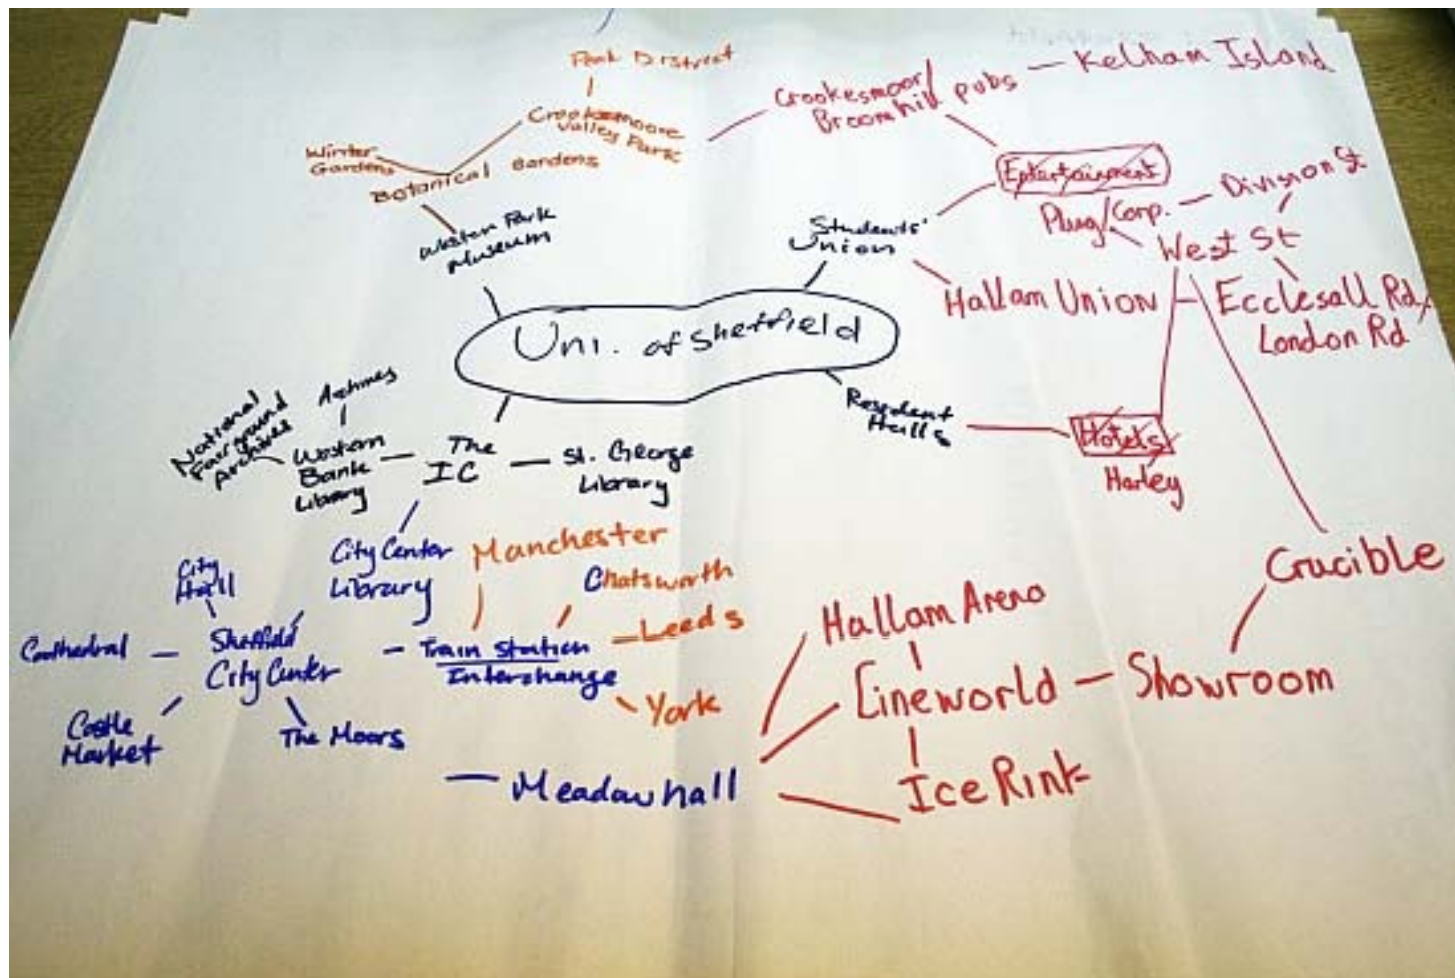 Peak District
Crookesmoore
Valley Park
Winter
Gardens
Botanical Gardens
Weston Park
Museum
Crookesmoor/
Broomhill pubs
Kelham Island
Entertainment
Plug/Corp.
Division St
West St
Students'
Union
Hallam Union
Ecclesall Rd/
London Rd
Uni. of Sheffield
Resident
Halls
Hotels
Harley
Archives
National
Fairground
Archives
Western
Bank
Library
The
IC
St. George
Library
City Center
Library
Manchester
Chatsworth
Leeds
York
City
Hall
Cathedral
Sheffield
City Center
Train Station
Interchange
Castle
Market
The Moors
Meadowhall
Hallam Arena
Cineworld
Showroom
Crucible
Ice Rink